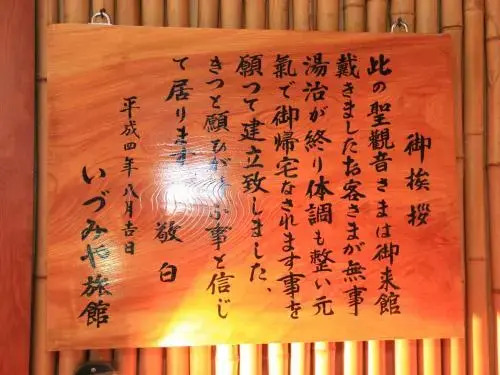 御挨拶
此の聖觀音さまは御来館
戴きましたお客さまが無事
湯治が終り体調も整い元
氣で御帰宅なされます事を
願つて建立致しました、
きつと願ひが 事と信じ
て居ります 敬白
平成四年八月吉日
いづみや旅館